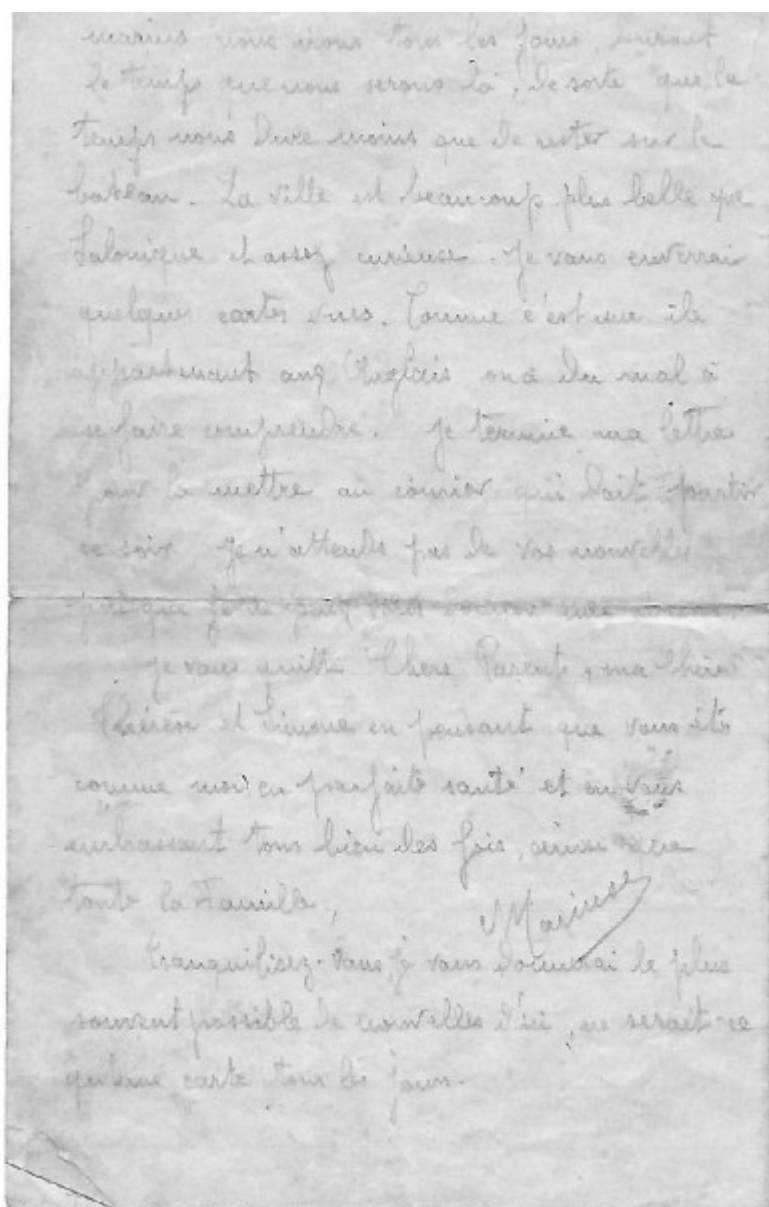 marins nous irons tous les jours, durant
le temps que nous serons là, de sorte que le
temps nous dure moins que de rester sur le
bateau. La ville est beaucoup plus belle que
Salonique et assez curieuse. Je vous enverrai
quelques cartes vues. Comme c'est une île
appartenant aux Anglais on a du mal à
se faire comprendre. Je termine ma lettre
pour la mettre au courier qui doit partir
ce soir. Je n'attends pas de vos nouvelles
puisque je ne peux vous donner une
Je vous quitte Chers Parents, ma chère
Thérèse et Simone en pensant que vous êtes
comme moi en parfaite santé et en vous
embrassant tous bien des fois, ainsi que
toute la Famille,
Marius
Tranquilisez-vous je vous donnerai le plus
souvent possible de nouvelles d'ici, ne serait-ce
qu'une carte tous les jours.